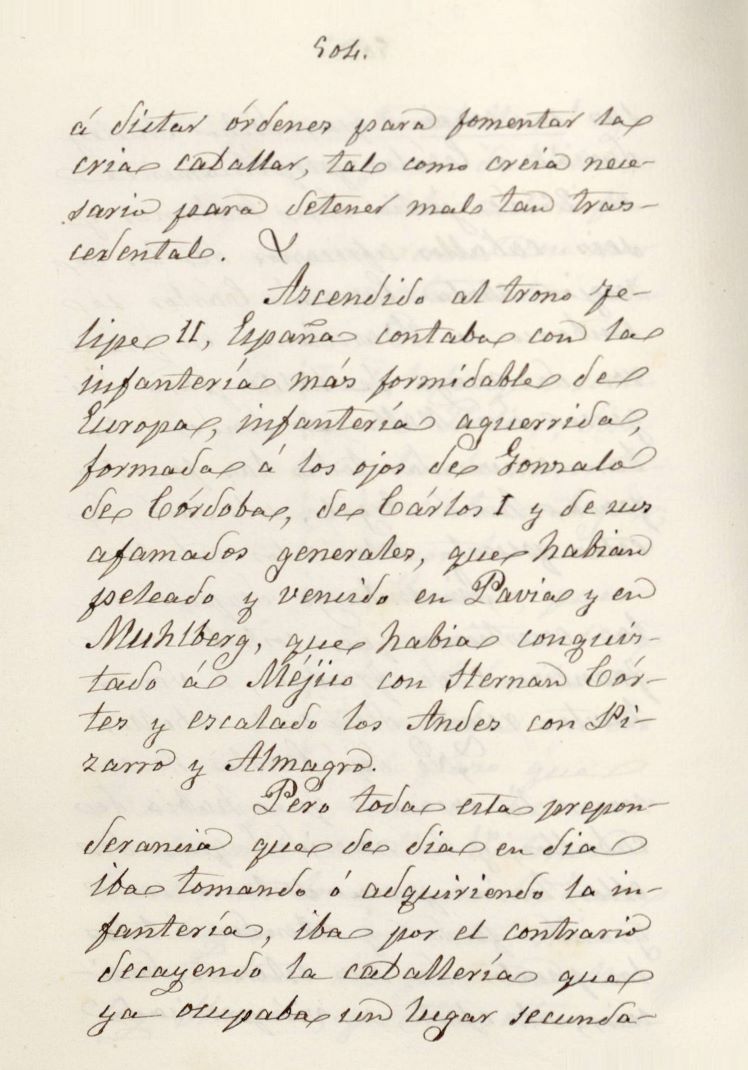 504.
á dictar órdenes para fomentar la
cria caballar, tal como creia nece-
sario para detener mal tan tras-
cedental.
Ascendido al trono Fe-
lipe II, España contaba con la
infantería más formidable de
Europa, infantería aguerrida,
formada á los ojos de Gonzalo
de Córdoba, de Cárlos I y de sus
afamados generales, que habian
peleado y vencido en Pavia y en
Muhlberg, que habia conquis-
tado á Méjico con Hernan Cór-
tes y escalado los Andes con Pi-
zarro y Almagro.
Pero toda esta prepon-
derancia que de dia en dia
iba tomando ó adquiriendo la in-
fantería, iba por el contrario
decayendo la caballería que
ya ocupaba un lugar secunda-